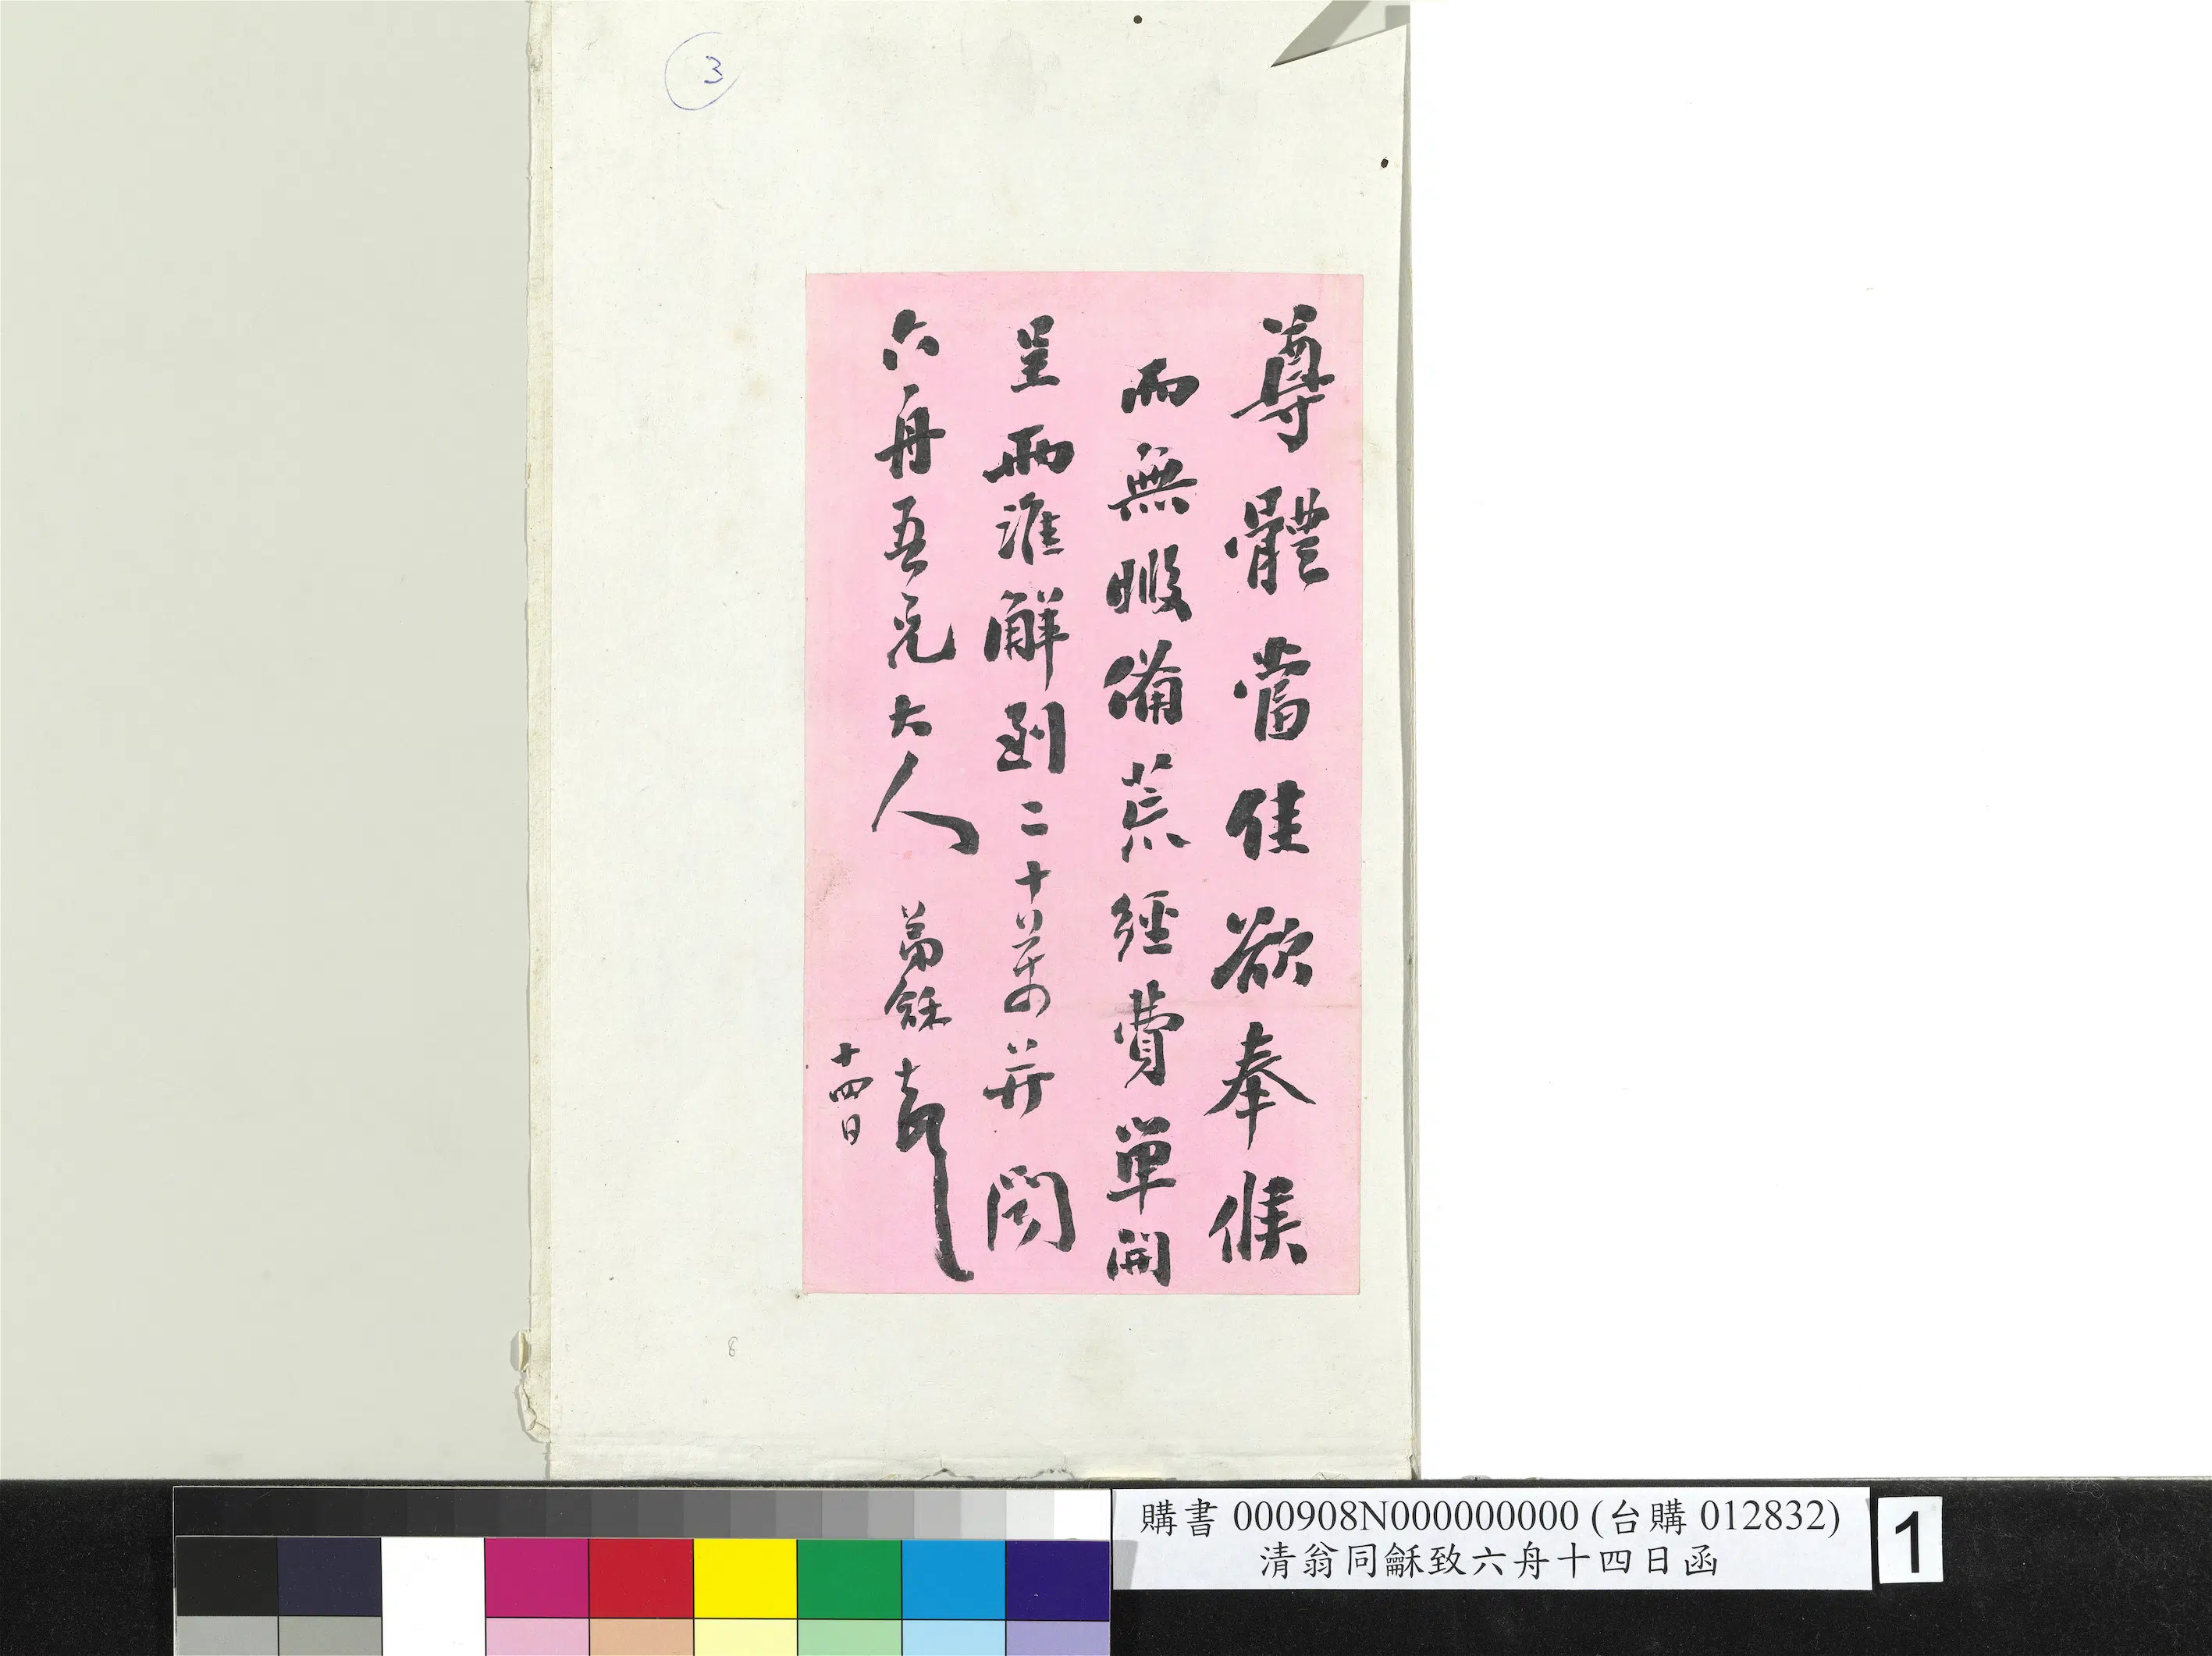 3
尊體當佳欲奉候
而無暇備荒經費單開
呈兩淮解到二十八萬並聞
六舟吾兄大人 弟龢頓
十四日
6
購書 000908N000000000 (台購 012832)
清翁同龢致六舟十四日函
1